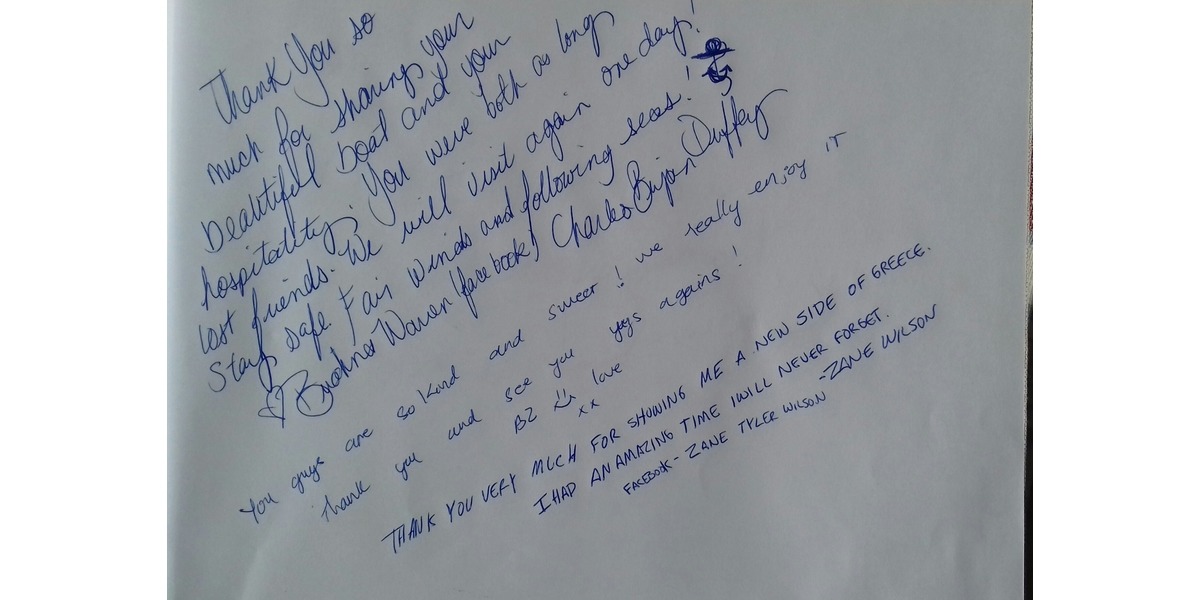 Thank You so
much for sharing your
beautiful boat and your
hospitality. You were both as long
lost friends. We will visit again one day!
Stay safe. Fair winds and following seas!
Warren (facebook) Charles Duffey
You guys are so Kind and sweet! we really enjoy it
thank you and see you guys agains!
BZ love
xx
THANK YOU VERY MUCH FOR SHOWING ME A NEW SIDE OF GREECE.
I HAD AN AMAZING TIME I WILL NEVER FORGET.
-ZANE WILSON
FACEBOOK - ZANE TYLER WILSON